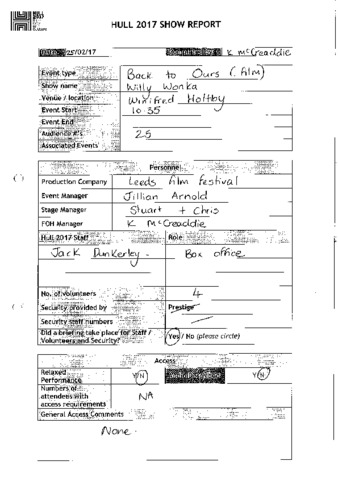 HULL 2017 SHOW REPORT
DATE: 25/02/17 K McGeaddie
Event type Back to Ours (film)
Show name Willy Wonka
Venue / location Winifred Holtby
Event Start 10.35
Event End
Audience #'s 25
Associated Events
Personnel
Production Company Leeds film festival
Event Manager Jillian Arnold
Stage Manager Stuart + Chris
FOH Manager K McGeaddie
Hull 2017 Staff Role
Jack Dunkerley - Box office
No. of Volunteers 4
Security provided by Prestige
Security staff numbers
Did a briefing take place for Staff / Yes / No (please circle)
Volunteers and Security?
Access
Relaxed Y/N Y/N
Performance
Numbers of
attendees with NA
access requirements
General Access Comments
None.